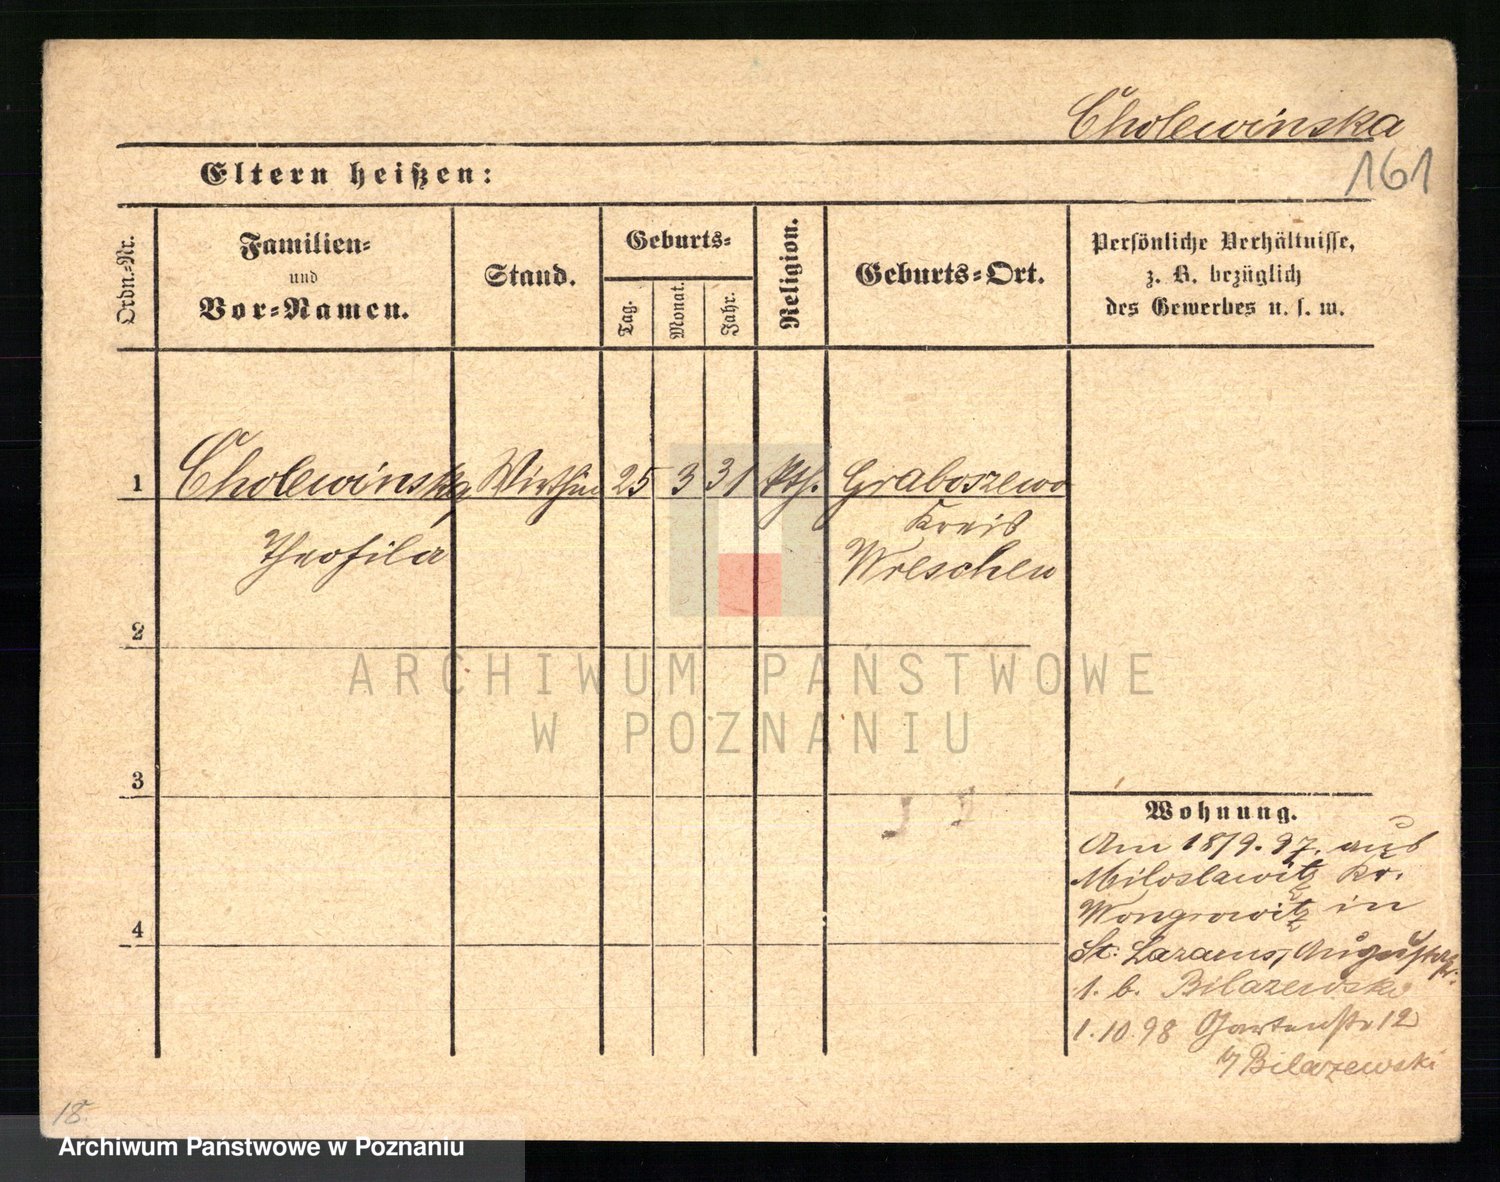 Cholewinska
161
Eltern heißen:
Ordn.-Nr.
Familien-
und
Vor-Namen.
Stand.
Geburts-
Tag.
Monat.
Jahr.
Religion.
Geburts-Ort.
Persönliche Verhältnisse,
z. B. bezüglich
des Gewerbes u. s. w.
1 Cholewinska Wirthin 25 3 31 kth. Graboszewo
Kreis
Theofila Wreschen
2
ARCHIWUM PAŃSTWOWE
W POZNANIU
3
Wohnung.
Am 18/9. 97. aus
Miloslawitz Kr.
Wongrowitz in
4
St. Lazarus, Augustastr.
1. b. Bilazewski
1.10.98 Gartenstr 12
b/ Bilazewski
18.
Archiwum Państwowe w Poznaniu